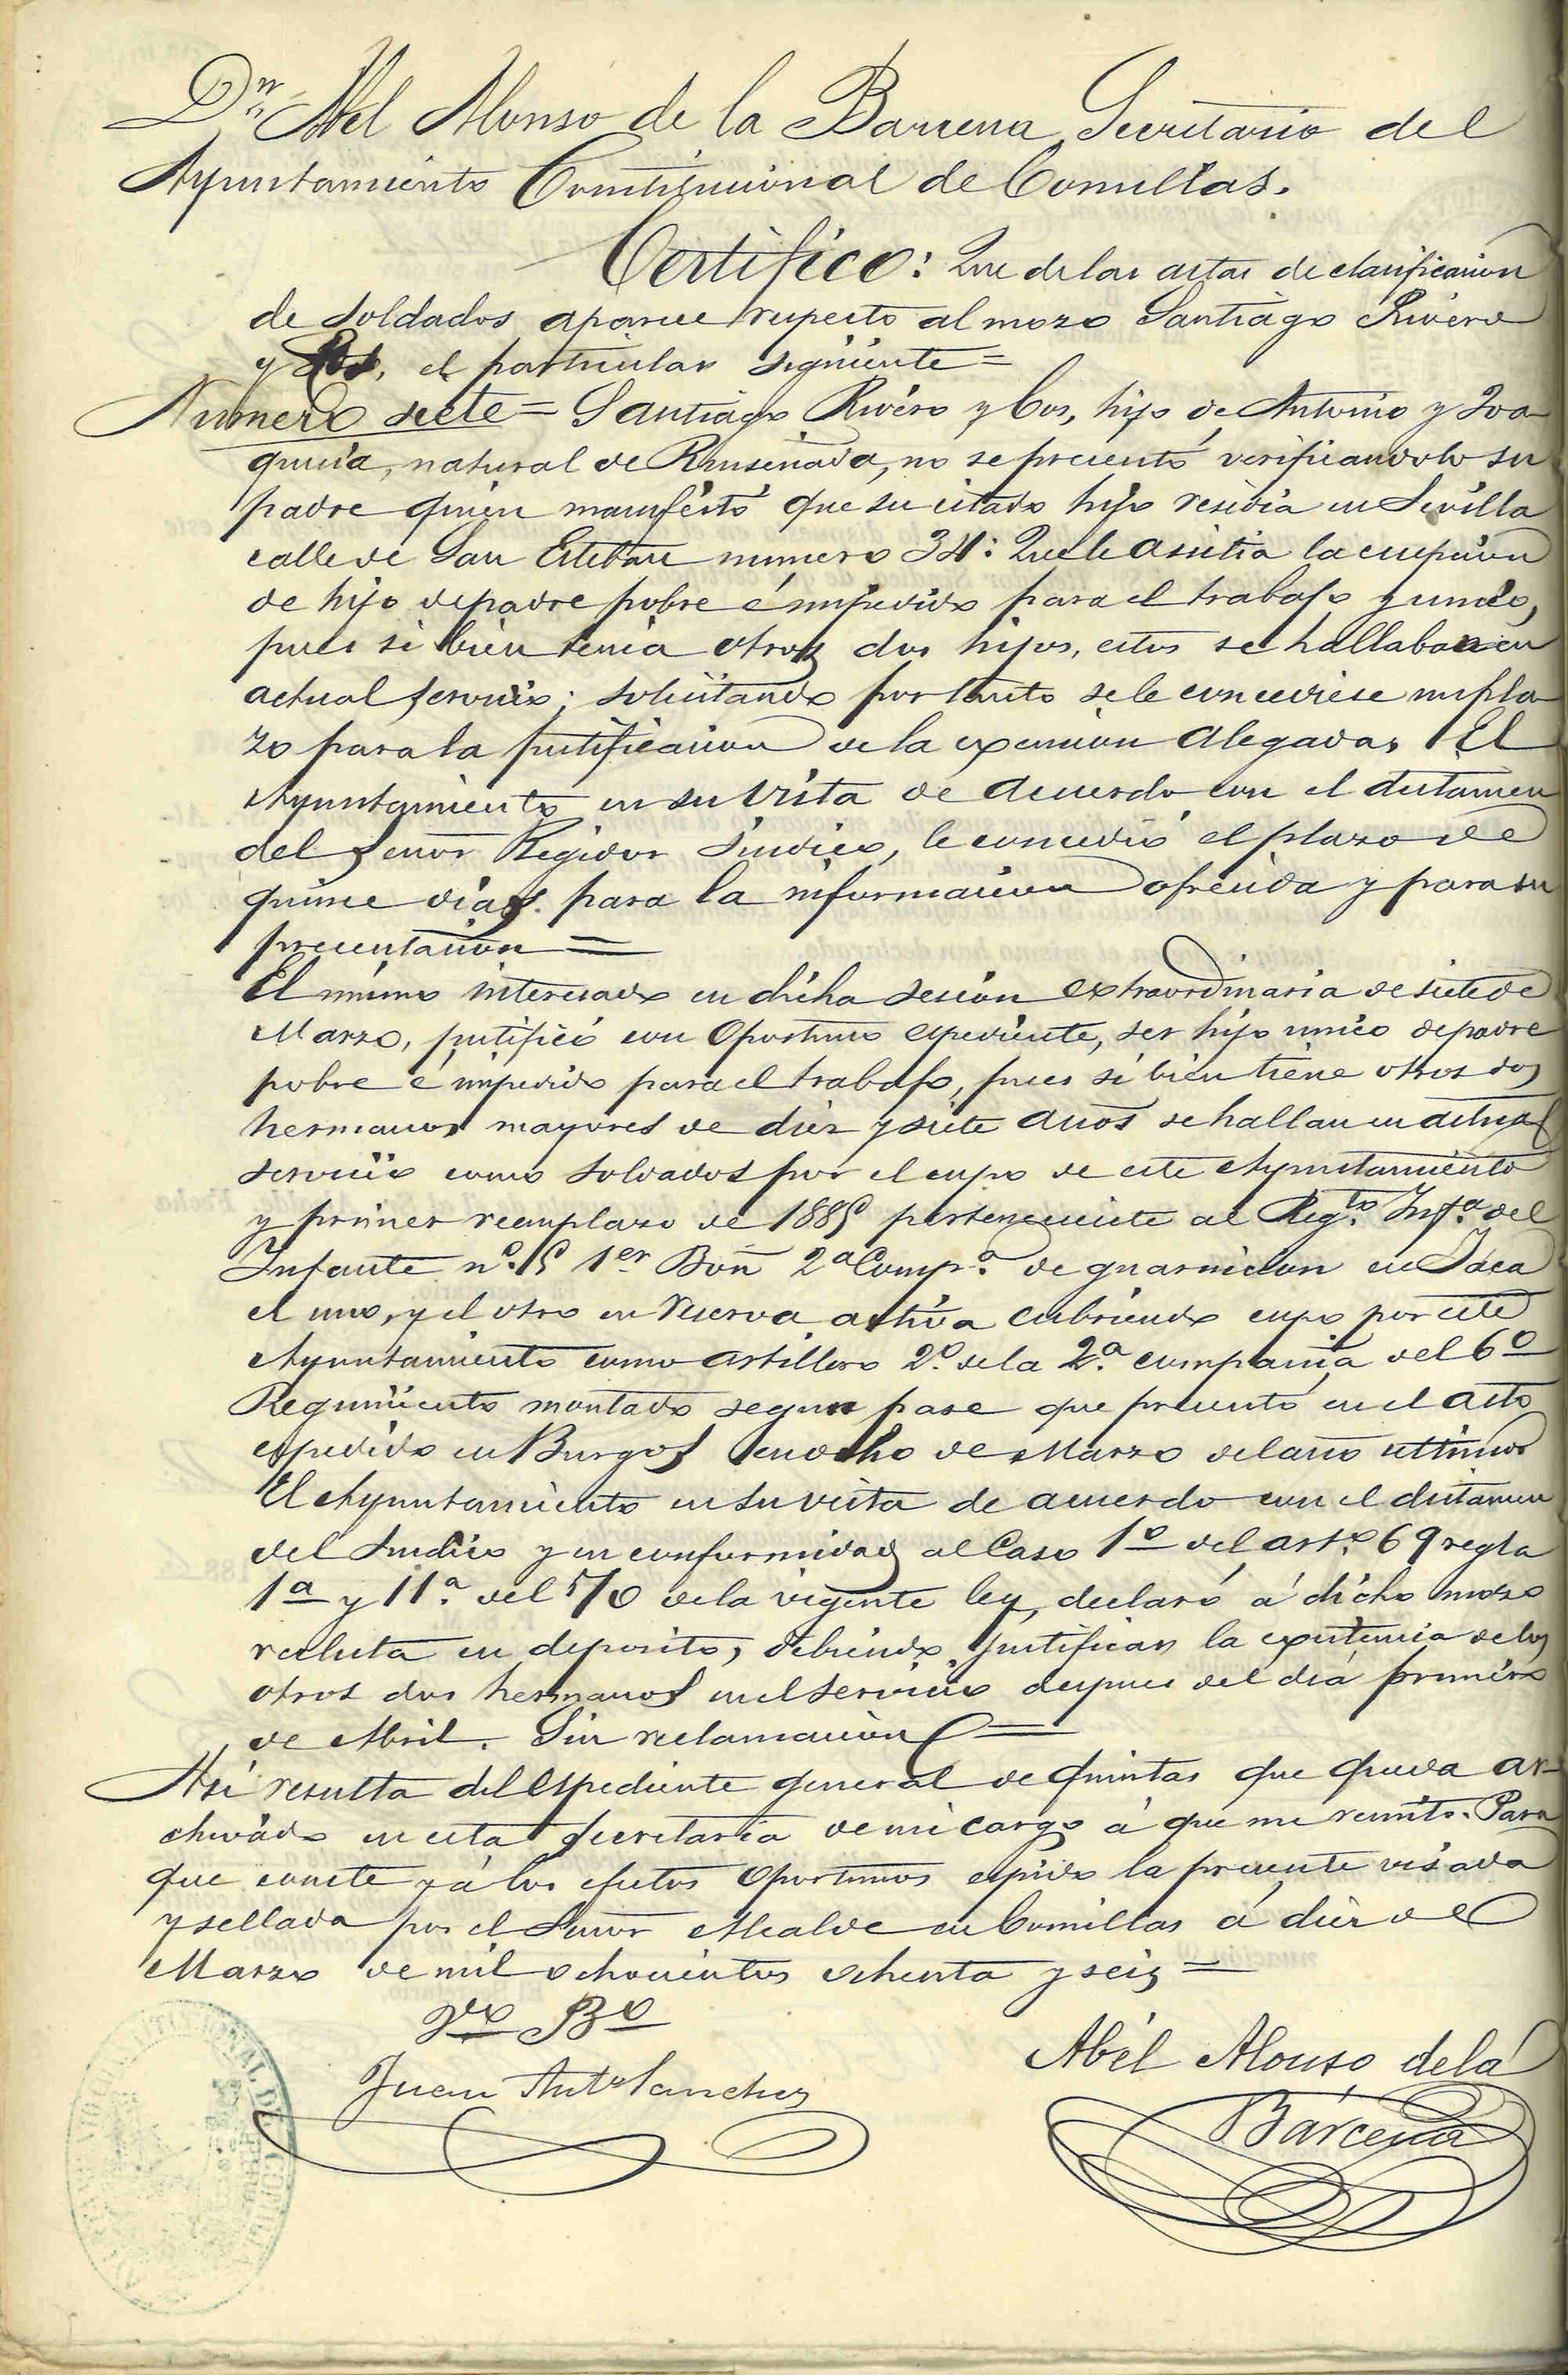 Dn. Abel Alonso de la Barcena, Secretario del
Ayuntamiento Constitucional de Comillas.
Certifico: Que de las actas de clasificacion
de soldados aparece respecto al mozo Santiago Rivero
y Cos, el particular siguiente=
Numero siete= Santiago Rivero y Cos, hijo de Antonio y Joa-
quina, natural de Ruiseñada, no se presentó verificandolo su
padre quien manifestó que su citado hijo residia en Sevilla
calle de San Esteban numero 34: Que le asistia la escepcion
de hijo de padre pobre é impedido para el trabajo y unico,
pues si bien tenia otros dos hijos, estos se hallaban en
actual servicio; solicitando por tanto se le concediese un pla
zo para la justificacion de la exencion alegada. El
Ayuntamiento en su vista de acuerdo con el dictamen
del Señor Regidor Sindico, le concedió el plazo de
quince dias para la informacion ofrecida y para su
presentacion=
El mismo interesado en dicha sesion extraordinaria de siete de
Marzo, justificó con oportuno espediente, ser hijo unico de padre
pobre é impedido para el trabajo, pues si bien tiene otros dos
hermanos mayores de diez y siete años se hallan en actual
servicio como soldados por el cupo de este Ayuntamiento
y primer reemplazo de 1885 perteneciente al Regto. Infa. del
Infante no. 5 1er Bon 2a Compa. de guarnicion en Jaca
el uno, y el otro en reserva activa cubriendo cupo por este
Ayuntamiento como artillero 2o. de la 2a. compañia del 6o
Regimiento montado segun pase que presentó en el acto
espedido en Burgos en ocho de Marzo del año ultimo
El Ayuntamiento en su vista de acuerdo con el dictamen
del Sindico y en conformidad al Caso 1o del arto. 69 regla
1a y 11a. del 70 de la vigente ley, declaró á dicho mozo
recluta en deposito, debiendo justificar la existencia de los
otros dos hermanos en el servicio despues del dia primero
de Abril. Sin reclamacion=
Asi resulta del espediente general de quintas que queda ar-
chivado en esta Secretaria de mi cargo á que me remito. Para
que conste y á los efectos oportunos espido la presente visada
y sellada por el Señor Alcalde en Comillas á diez de
Marzo de mil ochocientos ochenta y seis=
Vo Bo
Juan Anto Sanchez
Abel Alonso de la
Bárcena